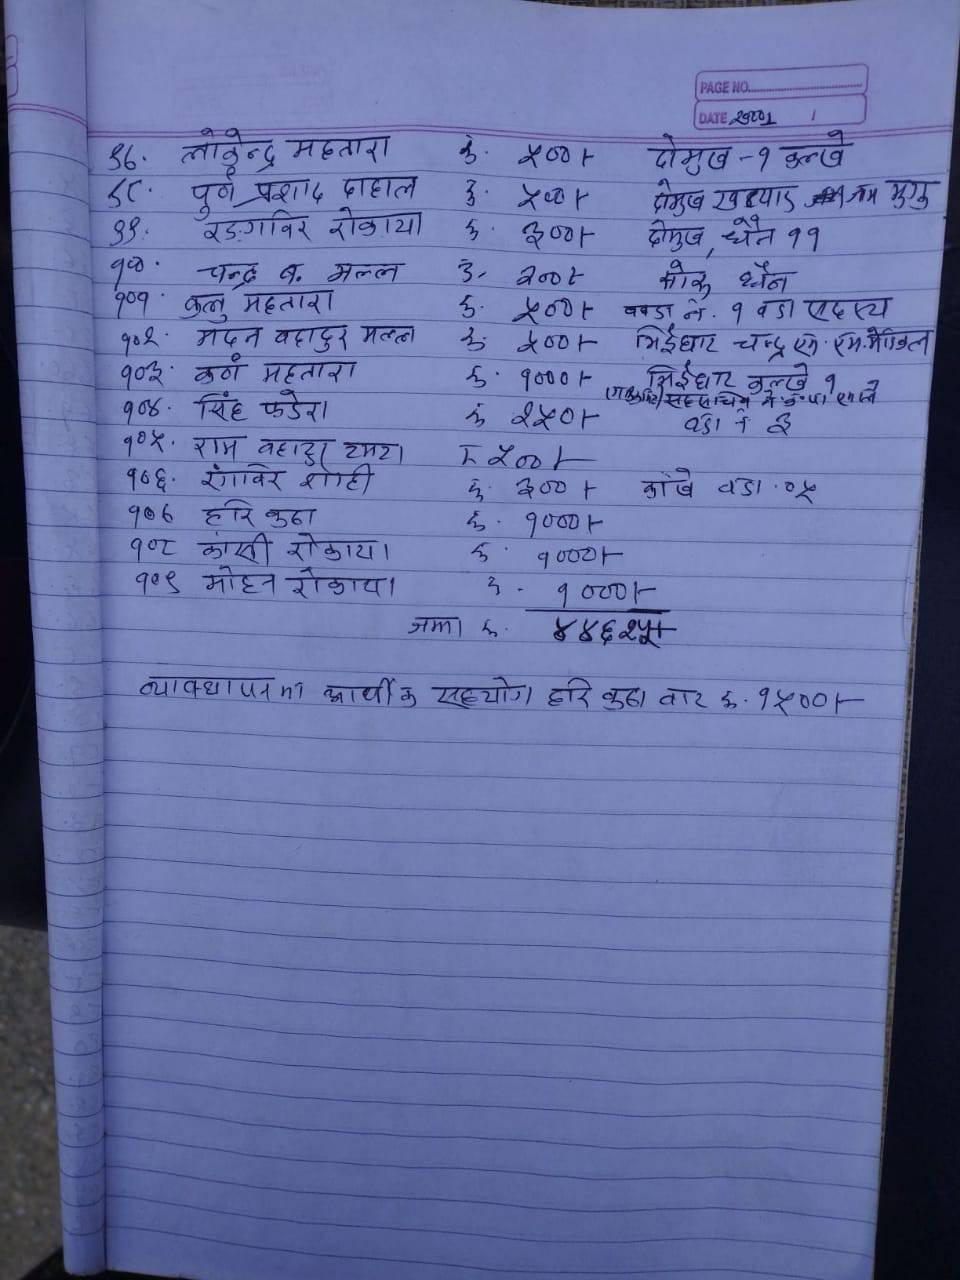 PAGE NO.
DATE
९७. लोकेन्द्र महतारा रु. ५००।- दोमुख - १ कल्खे
९८. पुर्ण प्रशाद दाहाल रु. ५००।- दोमुख खत्याड मुगु
९९. खड्गविर रोकाया रु. ३००।- दोमुख, धैन ११
१००. चन्द्र ब. मल्ल रु. २००।- धैन
१०१. कालु महतारा रु. ५००।- वडा नं. १ वडा सदस्य
१०२. मदन वहादुर मल्ल रु. ५००।- भिईघार चन्द्र एन. एम. मेडिकल
१०३. कर्ण महतारा रु. १०००।- भिईघार कल्खे १
१०४. सिंह फडेरा रु. २५०।- सहसचिव ने.क.पा एमाले
वडा नं ३
१०५. राम वहादुर टमटा रु ५००।-
१०६. रंगविर शाही रु. ३००।- कांखे वडा. ०५
१०७ हरि बुढा रु. १०००।-
१०८ कांसी रोकाया रु. १०००।-
१०९ मोहन रोकाया रु. १०००।-
जम्मा रु. ४४६२५।-
व्यावथापनमा आर्थीक सहयोग हरि बुढा वाट रु. १५००।-